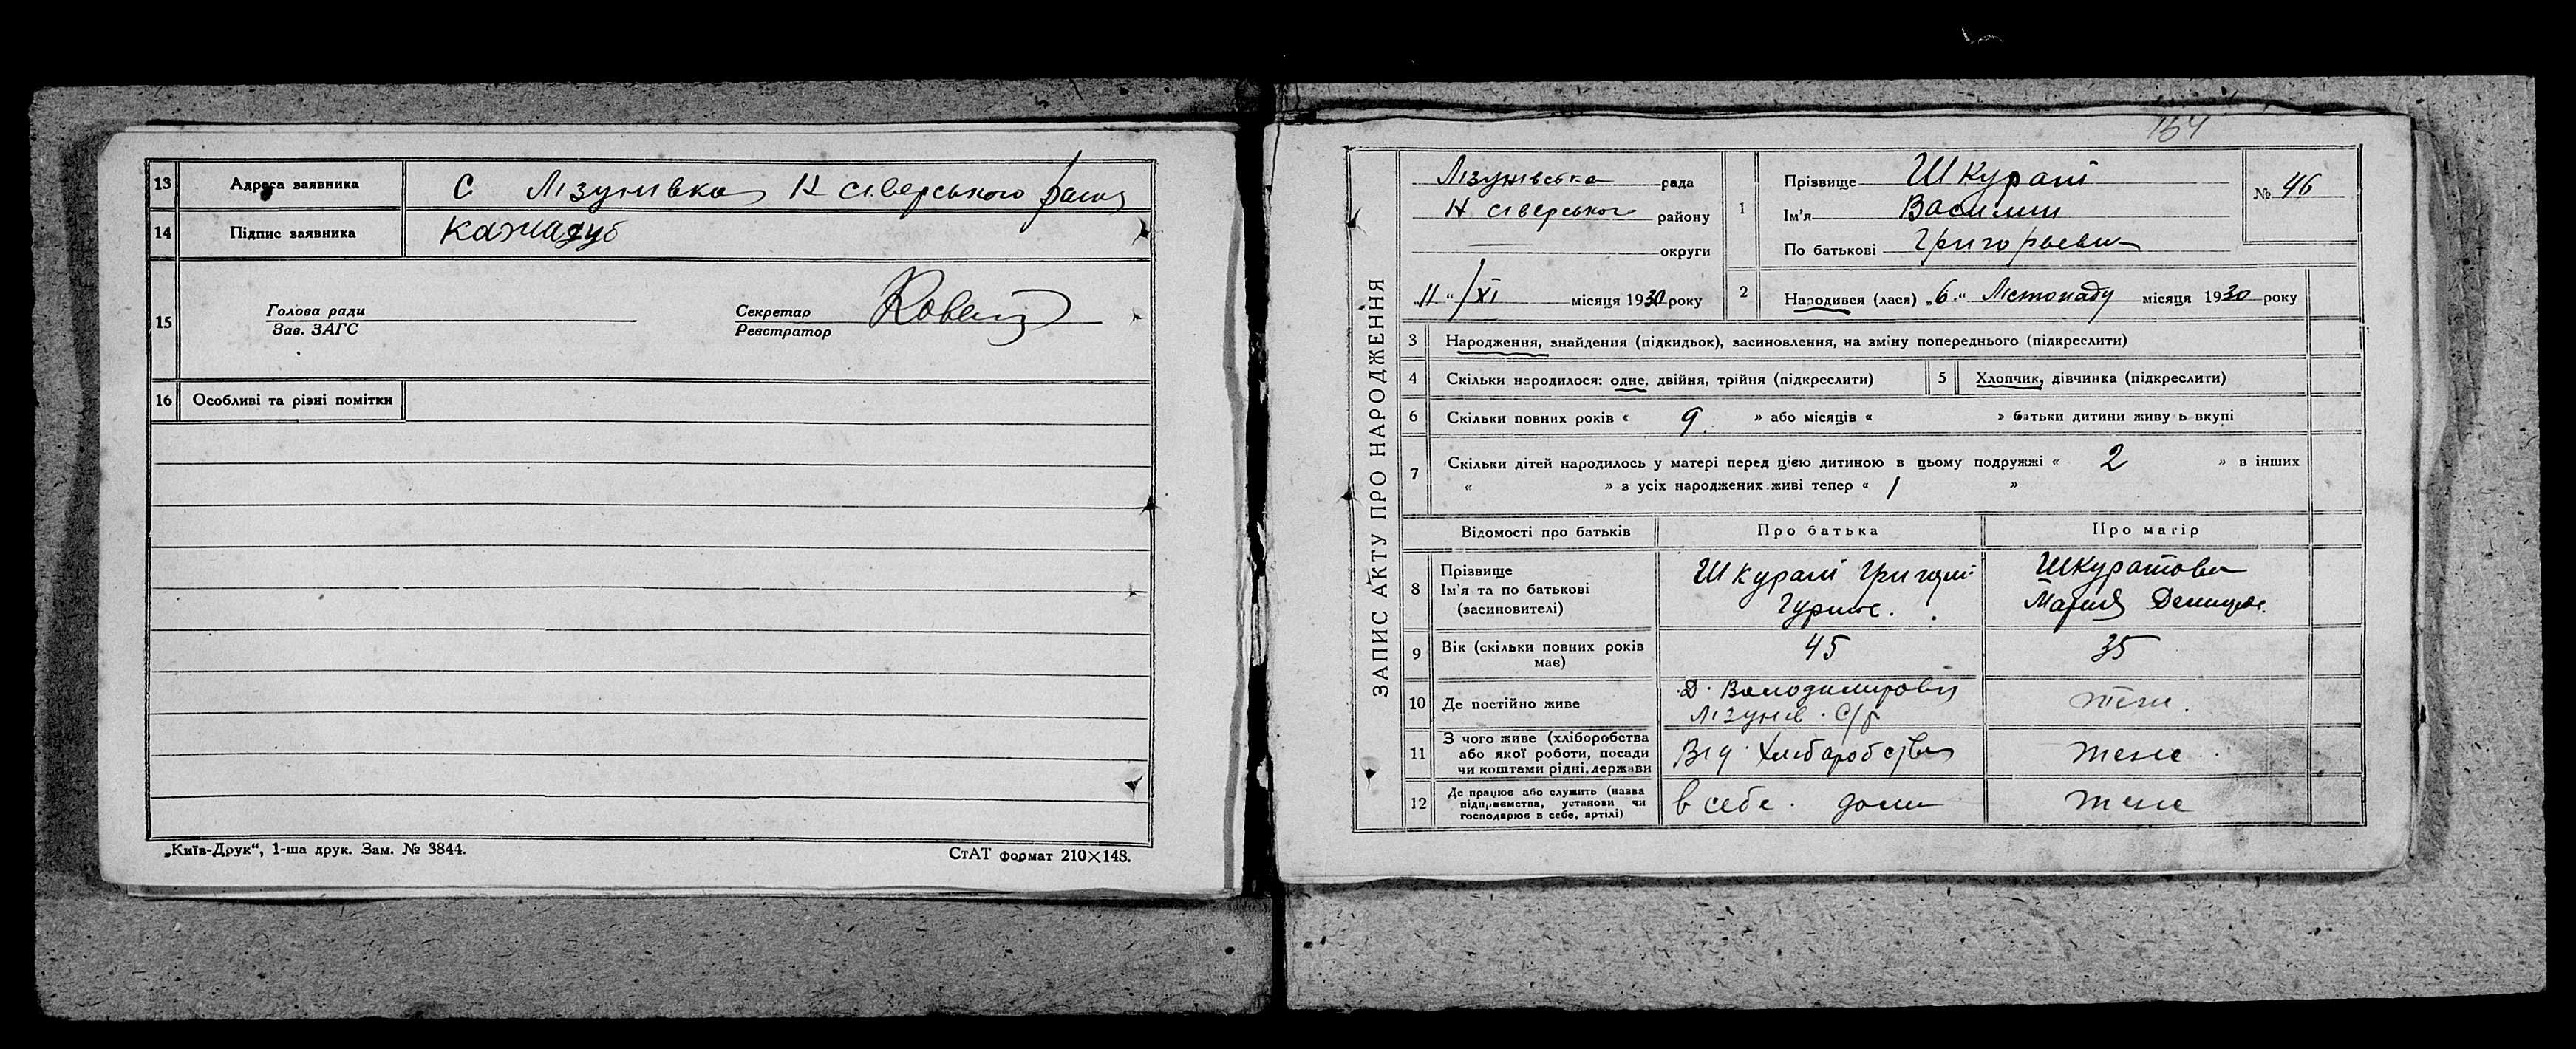 13 Адреса заявника С Лізунівка Н сіверського
14 Підпис заявника Кажадуб
15
Голова ради
Зав. ЗАГС
Секретар
Реєстратор
16 Особливі та різні помітки
„Київ-Друк“, 1-ша друк. Зам. № 3844.
СтАТ формат 210×148.
164
ЗАПИС АКТУ ПРО НАРОДЖЕННЯ
Лізунівська рада
Н сіверського району
округи
„11“ /XI місяця 1930 року
1 Прізвище Шкурат
Ім'я Василий
По батькові Григорьевич
№ 46
2 Народився (лася) „6.“ Лістопаду місяця 1930 року
3 Народження, знайдения (підкидьок), засиновлення, на зміну попереднього (підкреслити)
4 Скільки народилося: одне, двійня, трійня (підкреслити)
5 Хлопчик, дівчинка (підкреслити)
6 Скільки повних років « 9. » або місяців « » батьки дитини живуть вкупі
7 Скільки дітей народилось у матері перед цією дитиною в цьому подружжі « 2 » в інших
« » з усіх народжених живі тепер « 1 »
Відомості про батьків Про батька Про матір
8 Прізвище
Ім'я та по батькові
(засиновителі)
Шкурат Григорий
Шкуратова
Мария
9 Вік (скільки повних років
має)
45
35
10 Де постійно живе
Д. Володимировка
Лізунів. С/р
теж.
11 З чого живе (хліборобства
або якої роботи, посади
чи коштами рідні, держави
Від Хлібаробства
теже
12 Де працює або служить (назва
підприємства, установи чи
господарює в себе, артілі)
в себе. дома
теже